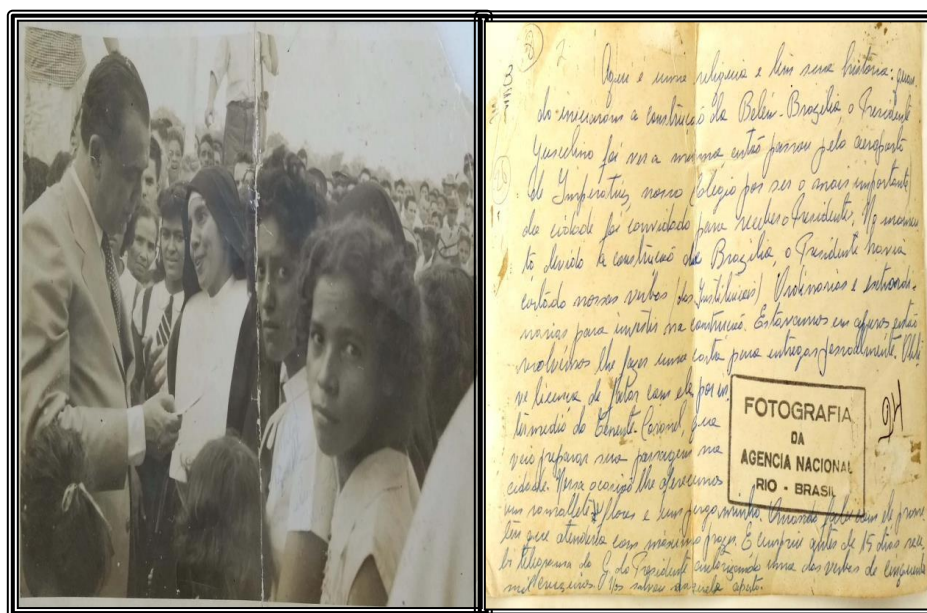 Aqui é uma relíquia e tem sua história: quan
do iniciaram a construção da Belém-Brazília o Presidente
Juscelino foi ver a mesma, então passou pelo aeroporto
de Imperatriz, nosso Colégio por ser o mais importante
da cidade foi convidado para receber o Presidente. No momen
to devido a construção de Brazília, o Presidente havia
cortado nossas verbas (das Instituições) Ordinárias e extraordi-
nárias para investir na construção. Estavamos em aperos, então
resolvemos lhe fazer uma carta para entregar pessoalmente. Obti
ve licença de falar com ele por in
termédio do Tenente Coronel, que
veio preparar sua passagem na
cidade. Nessa ocasião lhe oferecemos
um ramallete de flores e um pergaminho. Quando falei com ele prome
teu que atenderia com máximo prazer. E cumpriu antes de 15 dias rece
bi telegrama do G. do Presidente autorizando uma das verbas de cinquenta
mil cruzeiros. Nos salvou daquele aperto.
FOTOGRAFIA
DA
AGENCIA NACIONAL
RIO - BRASIL